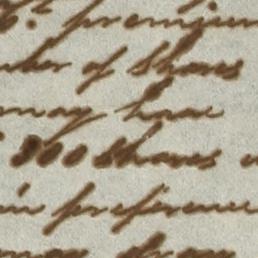 premium
of Shares
may have
300 Shares
in preference